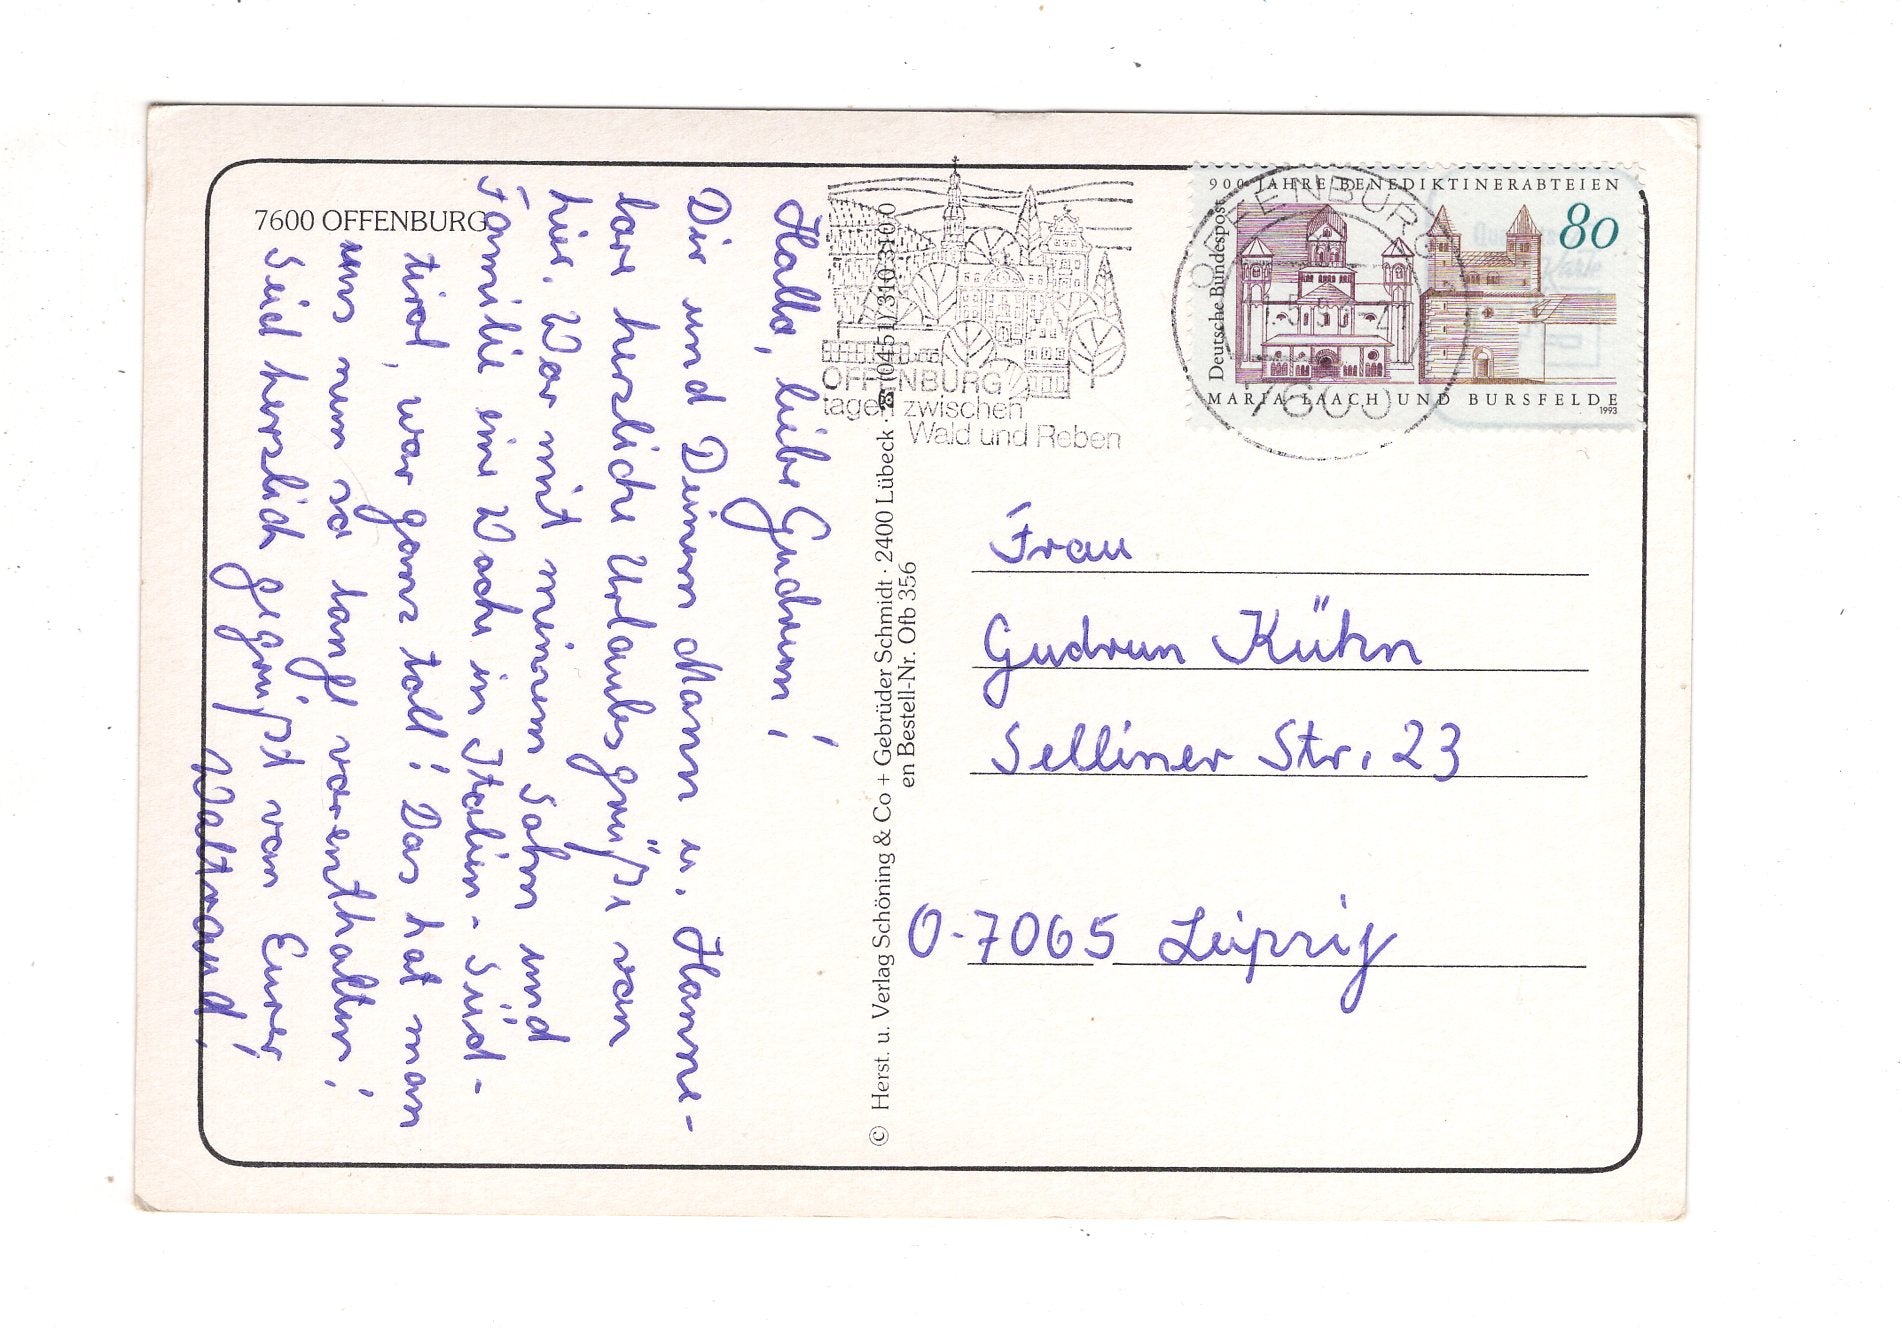 7600 OFFENBURG
Hallo, liebe Gudrun!
Dir und Deinem Mann u. Hanne-
lore herzliche Urlaubsgrüße von
hier. War mit meinem Sohn und
Familie eine Woche in Italien-Süd-
tirol, war ganz toll! Das hat man
uns nun so lange vorenthalten!
Seid herzlich gegrüßt von Eurer
Waltraud!
© Herst. u. Verlag Schöning & Co + Gebrüder Schmidt · 2400 Lübeck · ☎ (0451) / 310 310-0
en Bestell-Nr. Ofb 356
OFFENBURG
tagen zwischen
Wald und Reben
OFFENBURG
7600
900 JAHRE BENEDIKTINERABTEIEN
80
Deutsche Bundespost
MARIA LAACH UND BURSFELDE
1993
Frau
Gudrun Kühn
Selliner Str. 23
O-7065 Leipzig